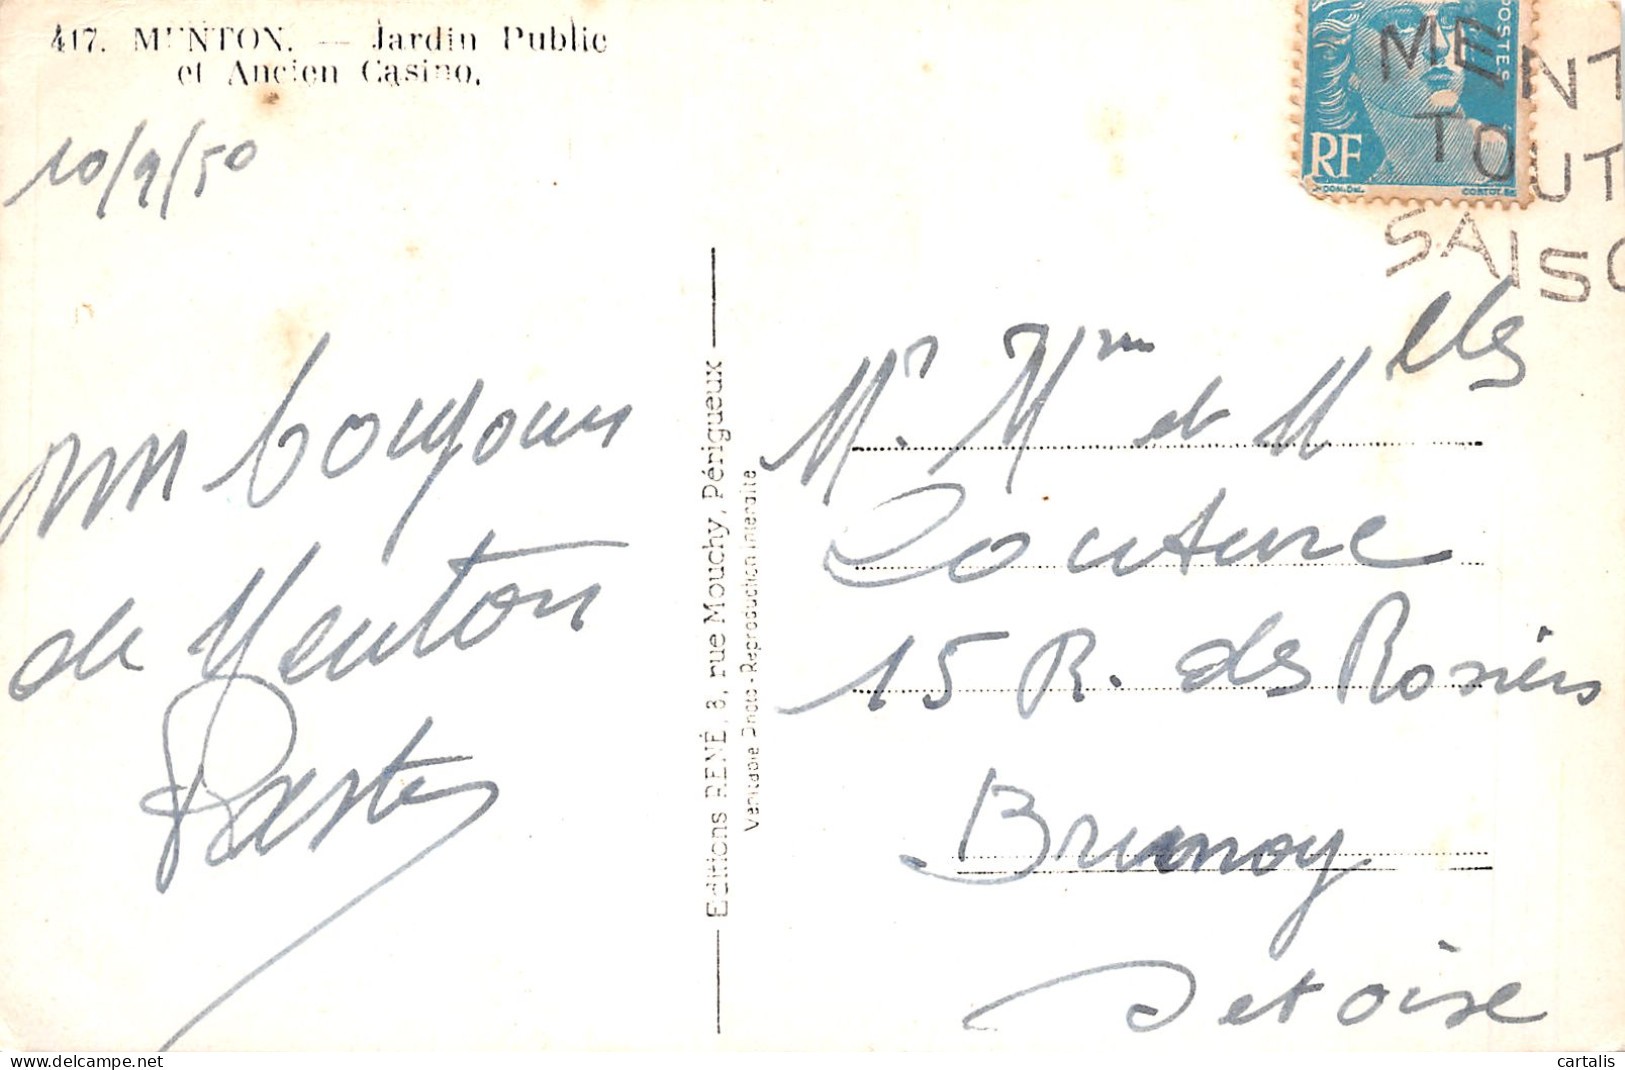 417. MENTON. — Jardin Public
et Ancien Casino.
10/9/50
un bonjour
de Menton
Editions RENÉ, 8, rue Mouchy, Périgueux
Véritable Photo - Reproduction Interdite
POSTES
RF
MENT
TOUT
SAISO
Mr. Mme et Melles
Couture
15 R. des Rosiers
Brunoy
S et oise
cartalis